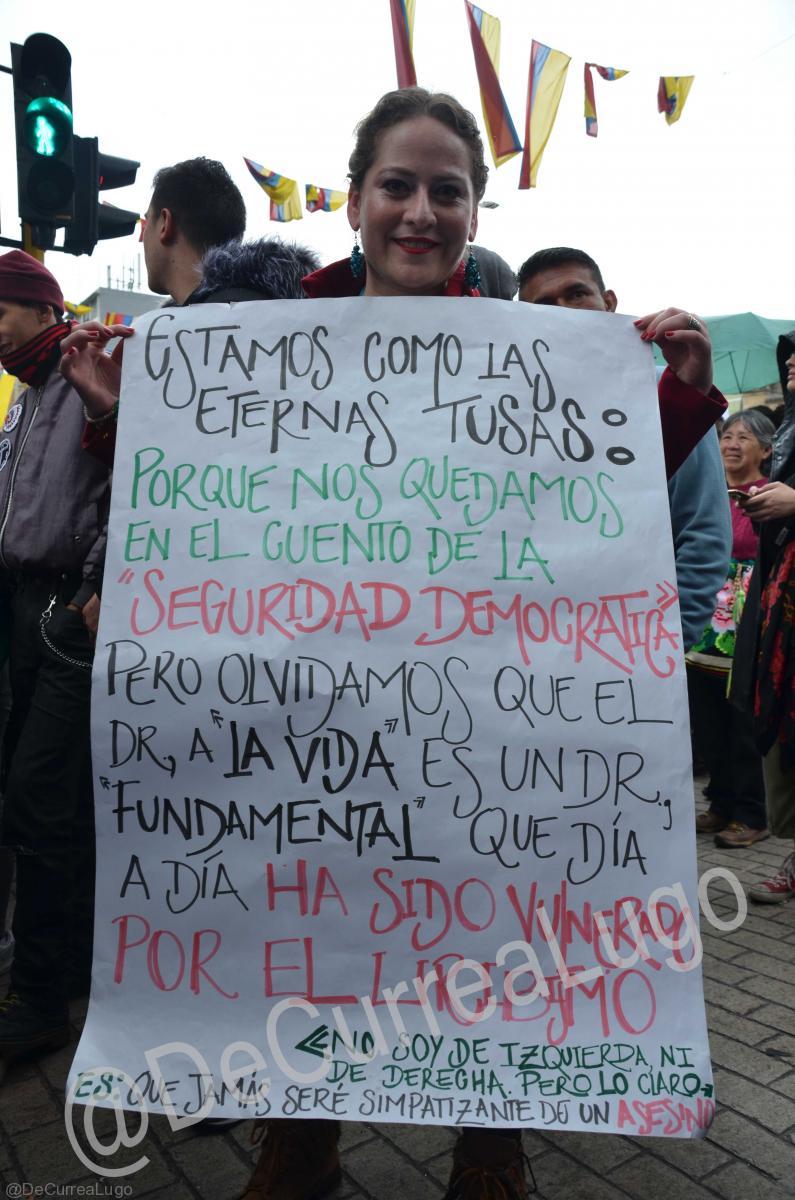 ESTAMOS COMO LAS
ETERNAS TUSAS:
PORQUE NOS QUEDAMOS
EN EL CUENTO DE LA
"SEGURIDAD DEMOCRATICA"
PERO OLVIDAMOS QUE EL
DR, A "LA VIDA" ES UN DR.,
"FUNDAMENTAL" QUE DÍA
A DÍA HA SIDO VULNERADO
POR EL URIBISMO
<<NO SOY DE IZQUIERDA, NI
DE DERECHA. PERO LO CLARO
ES: QUE JAMÁS SERÉ SIMPATIZANTE DE UN ASESINO
@DeCurreaLugo
@DeCurreaLugo